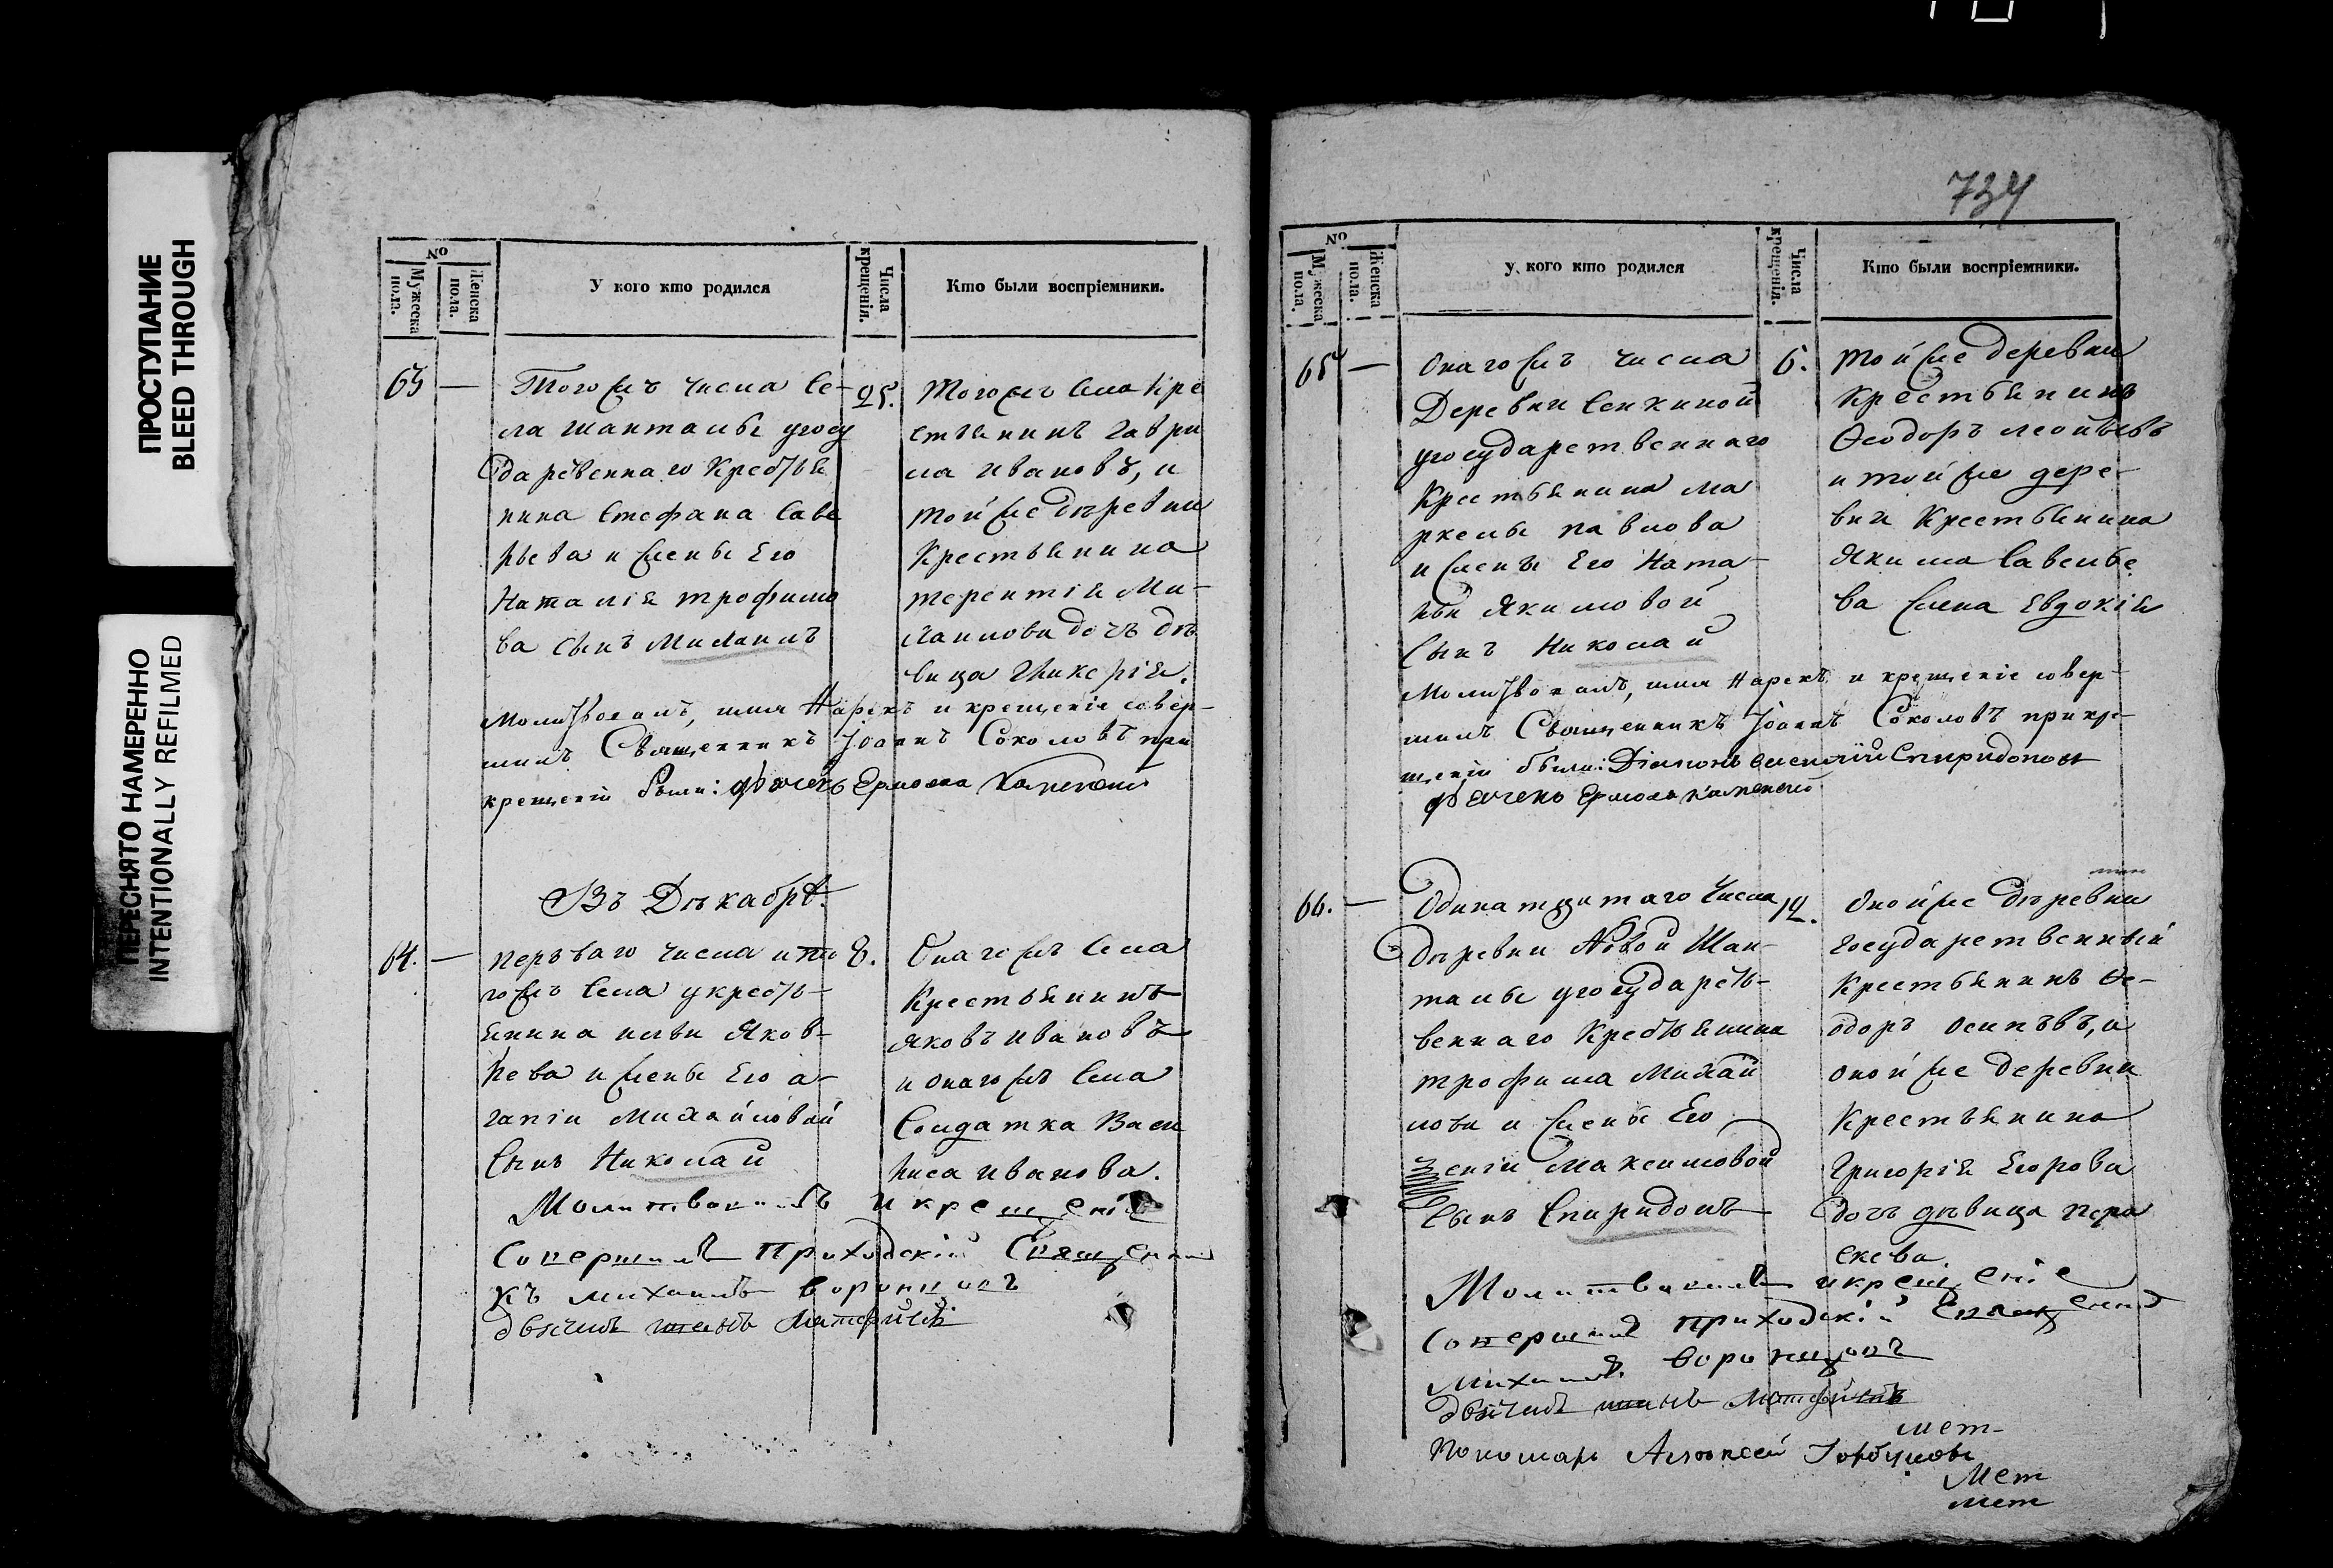 ПРОСТУПАНИЕ
BLEED THROUGH
ПЕРЕСНЯТО НАМЕРЕННО
INTENTIONALLY REFILMED
№
Мужеска пола.
Женска пола.
У кого кто родился
Числа крещенія.
Кто были воспріемники.
63 —
Тогожъ числа Се-
ла Шанталы угосу
дарственнаго Крестья
нина Стефана Саве
рьева и жены Его
Наталія трофимо
ва сынъ Михаилъ
25.
Тогожъ Села Кре
стьянинъ Гаври
ла Ивановъ, и
тойже деревни
Крестьянина
терентія Ми-
хаилова дочь дѣ
вица Гликерія.
Молитвовалъ, имя Нарекъ и крещеніе совер-
шилъ Священникъ Іоаннъ Соколовъ при
крещеніи были: Дьячекъ Ермолай Каменскій
Въ Декабрѣ.
64. —
перваго числа ито
гожъ Села укресть-
янина Ильи Яков-
лева и жены Его а-
гапіи Михайловой
Сынъ Николай
6.
Онагожъ Села
Крестьянинъ
яковъ ивановъ
и онагожъ Села
Солдатка Васи
лиса иванова.
Молитвовалъ и крещеніе
Совершилъ Приходскій Священни
къ михаилъ воронцовъ
дьячекъ
734
№
Мужеска пола.
Женска пола.
У кого кто родился
Числа крещенія.
Кто были воспріемники.
65 —
Онагожъ числа
Деревни Сенкиной
угосударственнаго
Крестьянина ма
ркелы павлова
и жены Его Ната-
льи Якимовой
Сынъ Николай
6.
тойже деревни
Крестьянинъ
Ѳеодоръ
и тойже дере-
вни Крестьянина
Якима Савелье
ва жена Евдокія
Молитвовалъ, имя Нарекъ и крещеніе совер-
шилъ Священникъ Іоаннъ Соколовъ прикре-
щеніи были: Діаконъ Спиридоновъ
Дьячекъ Ермолай Каменскій
66. —
Одинатцатаго Числа
деревни Новой Шан-
талы угосударст-
веннаго Крестьянина
трофима Михай
лова и жены Его
Максимовой
Сынъ Спиридонъ
12.
Онойже деревни
государственный
Крестьянинъ Ѳе-
одоръ осиповъ, и
онойже деревни
Крестьянина
Григорія Егорова
дочь дѣвица пера
скева.
Молитвовалъ икрещеніе
Совершилъ приходскій Священник
Михаилъ воронцовъ
дьячекъ
Пономарь Алексей Горбуновъ